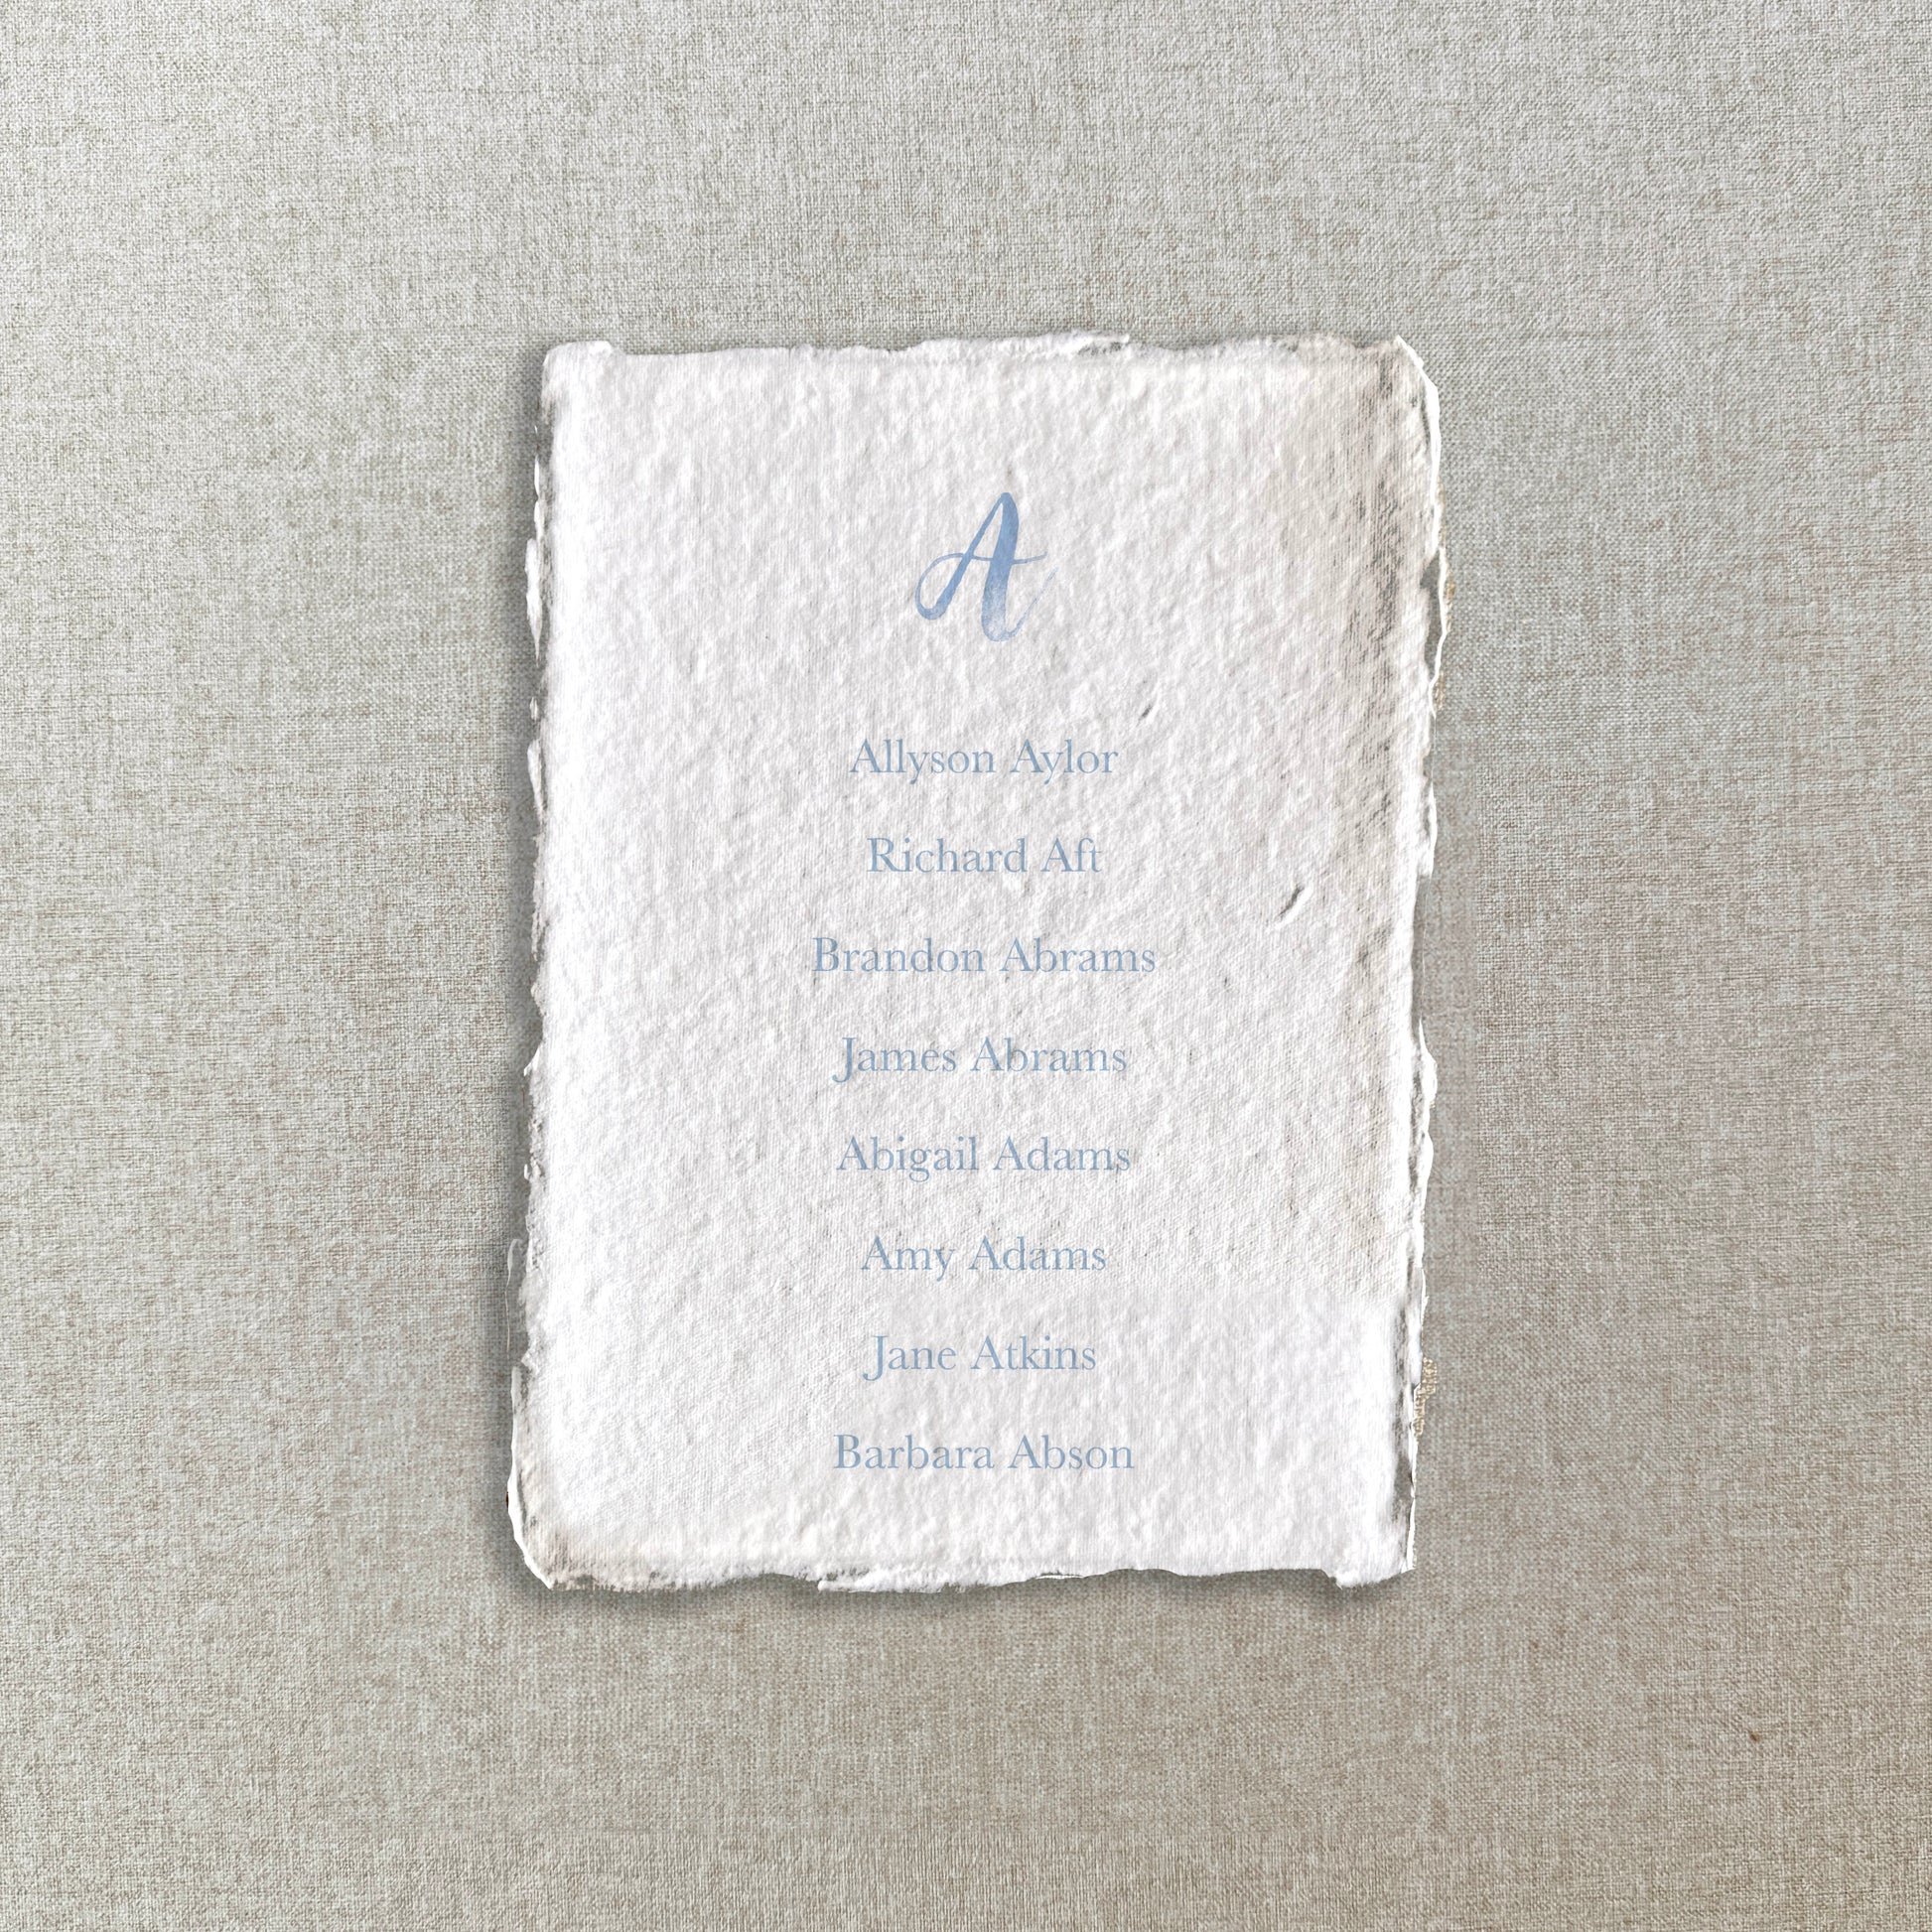 A
Allyson Aylor
Richard Aft
Brandon Abrams
James Abrams
Abigail Adams
Amy Adams
Jane Atkins
Barbara Abson